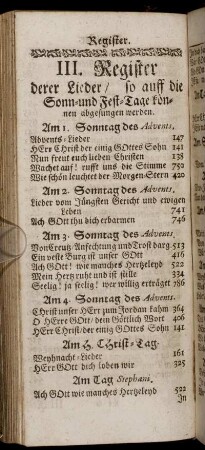 Register.
III. Register
derer Lieder/ so auff die
Sonn-und Fest-Tage kön-
nen abgesungen werden.
Am 1. Sonntag des Advents.
Advents-Lieder 147
HErr Christ der einig GOttes Sohn 141
Nun freut euch lieben Christen 138
Wachet auf! rufft uns die Stimme 750
Wie schön leuchtet der Morgen-Stern 420
Am 2. Sonntag des Advents.
Lieder vom Jüngsten Gericht und ewigen
Leben 741
Ach GOtt thu dich erbarmen 746
Am 3. Sonntag des Advents.
Von Creutz Anfechtung und Trost darg 513
Ein veste Burg ist unser GOtt 416
Ach GOtt! wie manches Hertzeleyd 522
Mein Hertz ruht und ist stille 334
Seelig! ja seelig! wer willig erträget 786
Am 4. Sonntag des Advents.
Christ unser HErr zum Jordan kahm 364
O HErre GOtt/ dein Göttlich Wort 406
HErr Christ/ der einig GOttes Sohn 141
Am H. CHrist-Tag.
Weyhnacht-Lieder 161
HErr GOtt dich loben wir 325
Am Tag Stephani,
Ach GOtt wie manches Hertzeleyd 522
In